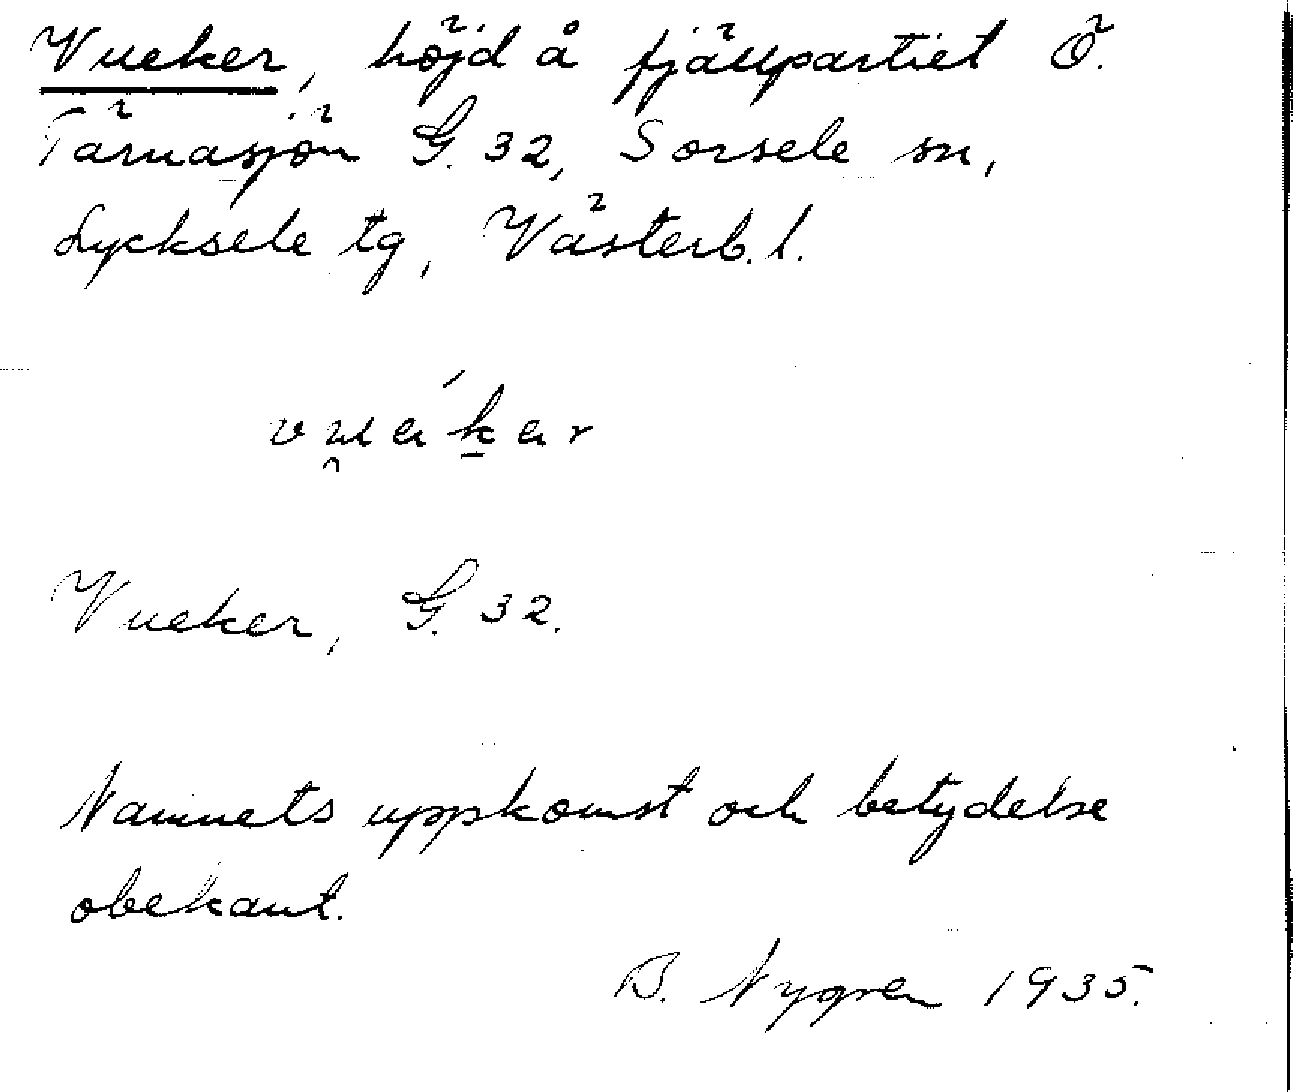 Vueker, höjd å fjällpartiet Ö.
Tärnasjön G. 32, Sorsele sn,
Lycksele tg, Västerb. l.
Vueker, G. 32.
Namnets uppkomst och betydelse
obekant.
B. Nygren 1935.